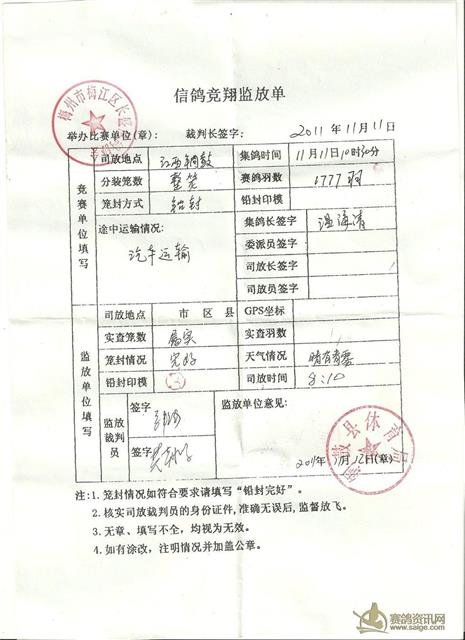 信鸽竞翔监放单
举办比赛单位(章): 裁判长签字: 2011年11月11日
竞赛单位填写
司放地点 江西铜鼓 集鸽时间 11月11日10时30分
分装笼数 整笼 赛鸽羽数 1777羽
笼封方式 铅封 铅封印模
途中运输情况: 集鸽长签字 温海清
汽车运输 委派员签字
司放长签字
司放员签字
监放单位填写
司放地点 市 区 县 GPS坐标
实查笼数 属实 实查羽数
笼封情况 完好 天气情况 晴有青雾
铅封印模 司放时间 8:10
监放裁判员 签字 监放单位意见:
签字
2011年11月12日(章)
注:1.笼封情况如符合要求请填写“铅封完好”。
2.核实司放裁判员的身份证件,准确无误后,监督放飞。
3.无章、填写不全,均视为无效。
4.如有涂改,注明情况并加盖公章。
赛鸽资讯网
www.saige.com